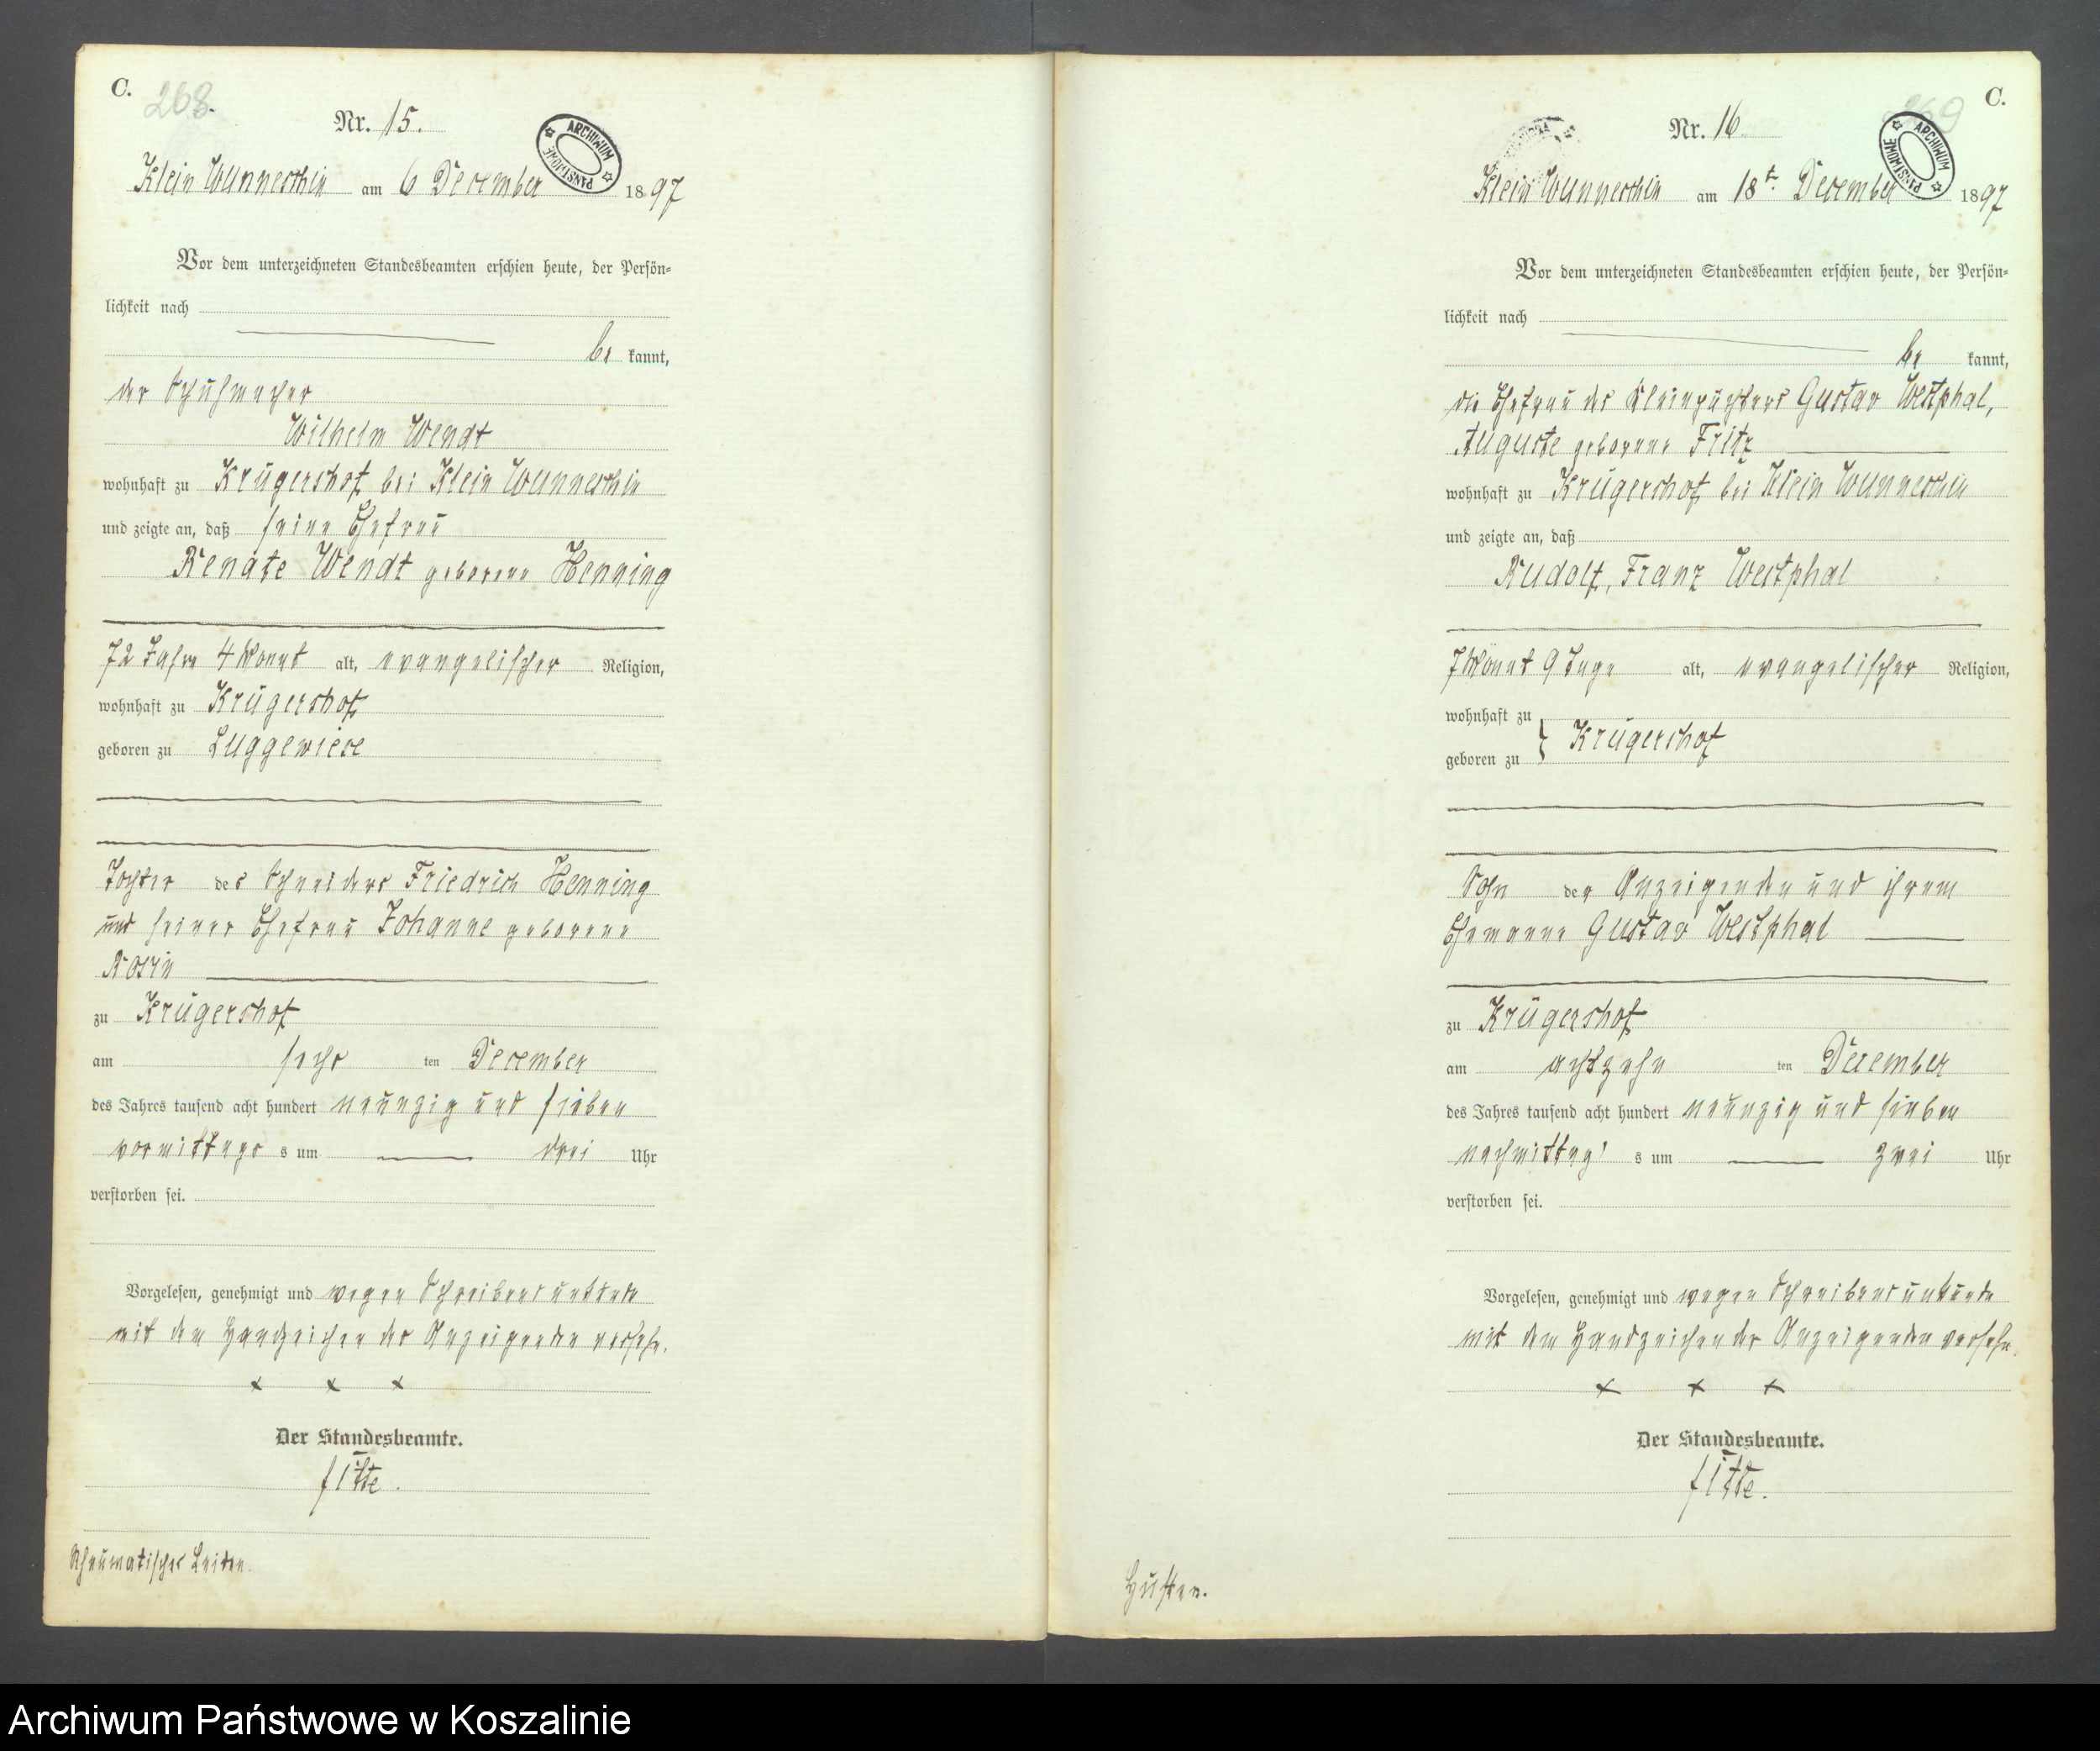 C.
268.
Nr. 15.
ARCHIWUM PAŃSTWOWE
Klein Wunneschin am 6 December 1897
Vor dem unterzeichneten Standesbeamten erschien heute, der Persön-
lichkeit nach
be kannt,
der Schuhmacher
Wilhelm Wendt
wohnhaft zu Krügershof bei Klein Wunneschin
und zeigte an, daß seine Ehefrau
Renate Wendt geborene Henning
72 Jahre 4 Monat alt, evangelischer Religion,
wohnhaft zu Krügershof
geboren zu Luggewiese
Tochter des Schneiders Friedrich Henning
und seiner Ehefrau Johanne geborene
Rosin
zu Krügershof
am sechs ten December
des Jahres tausend acht hundert neunzig und sieben
vormittags s um drei Uhr
verstorben sei.
Vorgelesen, genehmigt und wegen Schreibensunkunde
mit dem Handzeichen des Anzeigenden versehn.
x x x
Der Standesbeamte.
Rheumatisches Leiden.
C.
269
Nr. 16
ARCHIWUM PAŃSTWOWE
Klein Wunneschin am 18t. December 1897
Vor dem unterzeichneten Standesbeamten erschien heute, der Persön-
lichkeit nach
be kannt,
die Ehefrau des Kleinpächters Gustav Westphal,
Auguste geborene Fritz
wohnhaft zu Krügershof bei Klein Wunneschin
und zeigte an, daß
Rudolf, Franz Westphal
7 Monat 9 Tage alt, evangelischer Religion,
wohnhaft zu
geboren zu } Krügershof
Sohn der Anzeigenden und ihrem
Ehemanne Gustav Westphal
zu Krügershof
am achtzehn ten December
des Jahres tausend acht hundert neunzig und sieben
nachmittag s um zwei Uhr
verstorben sei.
Vorgelesen, genehmigt und wegen Schreibensunkunde
mit dem Handzeichen der Anzeigenden versehn.
x x x
Der Standesbeamte.
Husten.
Archiwum Państwowe w Koszalinie